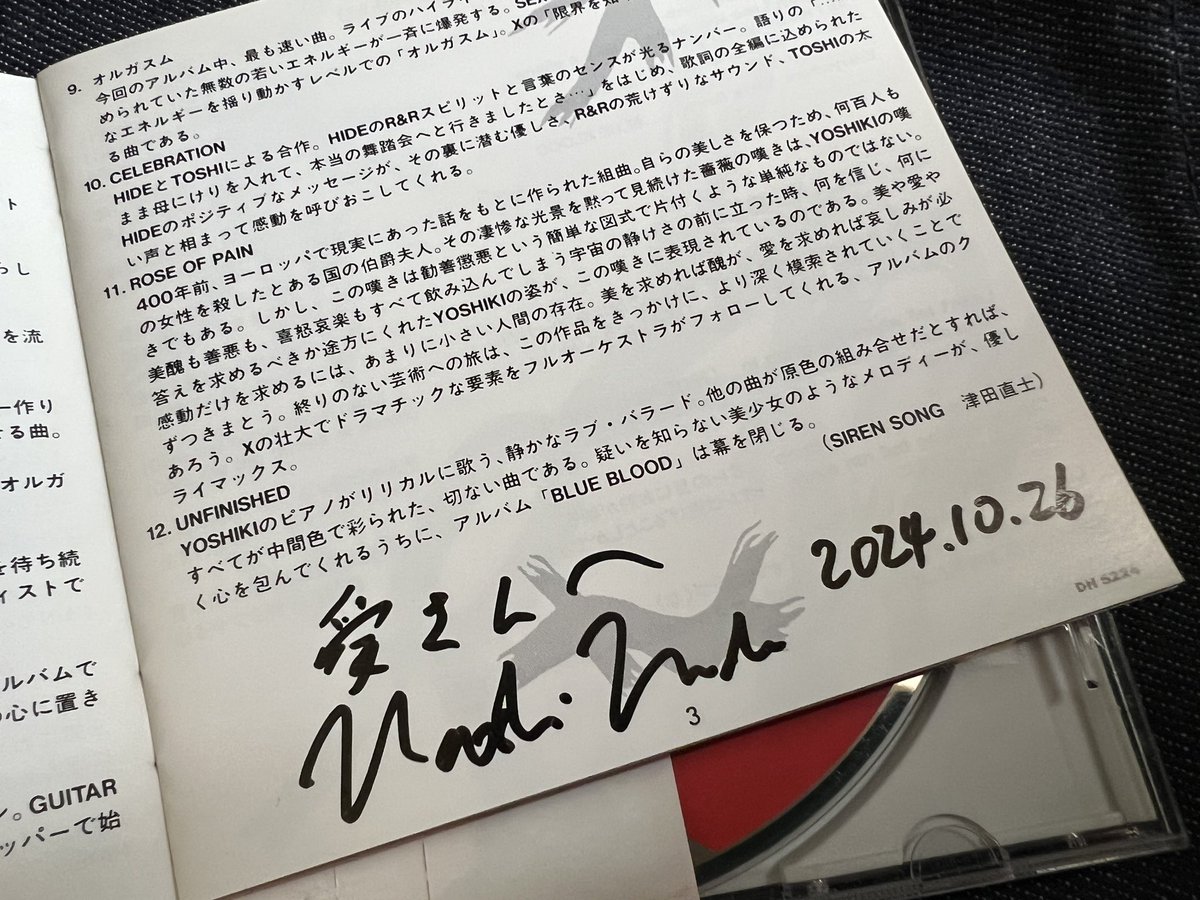 ト
らし
を流
ー作り
せる曲。
オルガ
を待ち続
ィストで
ルバムで
の心に置き
ン。GUITAR
ッパーで始
9. オルガスム
今回のアルバム中、最も速い曲。ライブのハイライ
められていた無数の若いエネルギーが一斉に爆発する。SEX
なエネルギーを揺り動かすレベルでの「オルガスム」。Xの「限界を知
る曲である。
10. CELEBRATION
HIDEとTOSHIによる合作。HIDEのR&Rスピリットと言葉のセンスが光るナンバー。語りの「……
まま母にけりを入れて、本当の舞踏会へと行きましたとさ…」をはじめ、歌詞の全編に込められた
HIDEのポジティブなメッセージが、その裏に潜む優しさ、R&Rの荒けずりなサウンド、TOSHIの太
い声と相まって感動を呼びおこしてくれる。
11. ROSE OF PAIN
400年前、ヨーロッパで現実にあった話をもとに作られた組曲。自らの美しさを保つため、何百人も
の女性を殺したとある国の伯爵夫人。その凄惨な光景を黙って見続けた薔薇の嘆きは、YOSHIKIの嘆
きでもある。しかし、この嘆きは勧善懲悪という簡単な図式で片付くような単純なものではない。
美醜も善悪も、喜怒哀楽もすべて飲み込んでしまう宇宙の静けさの前に立った時、何を信じ、何に
答えを求めるべきか途方にくれたYOSHIKIの姿が、この嘆きに表現されているのである。美や愛や
感動だけを求めるには、あまりに小さい人間の存在。美を求めれば醜が、愛を求めれば哀しみが必
ずつきまとう。終りのない芸術への旅は、この作品をきっかけに、より深く模索されていくことで
あろう。Xの壮大でドラマチックな要素をフルオーケストラがフォローしてくれる、アルバムのク
ライマックス。
12. UNFINISHED
YOSHIKIのピアノがリリカルに歌う、静かなラブ・バラード。他の曲が原色の組み合せだとすれば、
すべてが中間色で彩られた、切ない曲である。疑いを知らない美少女のようなメロディーが、優し
く心を包んでくれるうちに、アルバム「BLUE BLOOD」は幕を閉じる。
(SIREN SONG 津田直士)
愛さんへ
2024.10.26
DH 5224
3